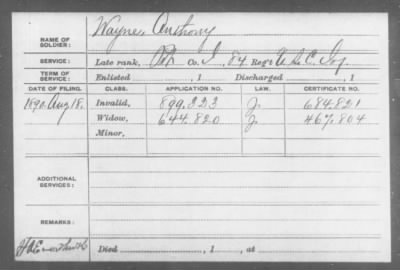 Wayne, Anthony
NAME OF SOLDIER:
SERVICE: Late rank, Pvt Co. I, 84 Reg't U.S.C. Inf.
TERM OF SERVICE: Enlisted , 1 Discharged , 1
DATE OF FILING. CLASS. APPLICATION NO. LAW. CERTIFICATE NO.
1890. Aug 18. Invalid, 899.223 J. 684.821
Widow, 644.820 J. 467.804
Minor,
ADDITIONAL SERVICES:
REMARKS:
Died , 1 , at